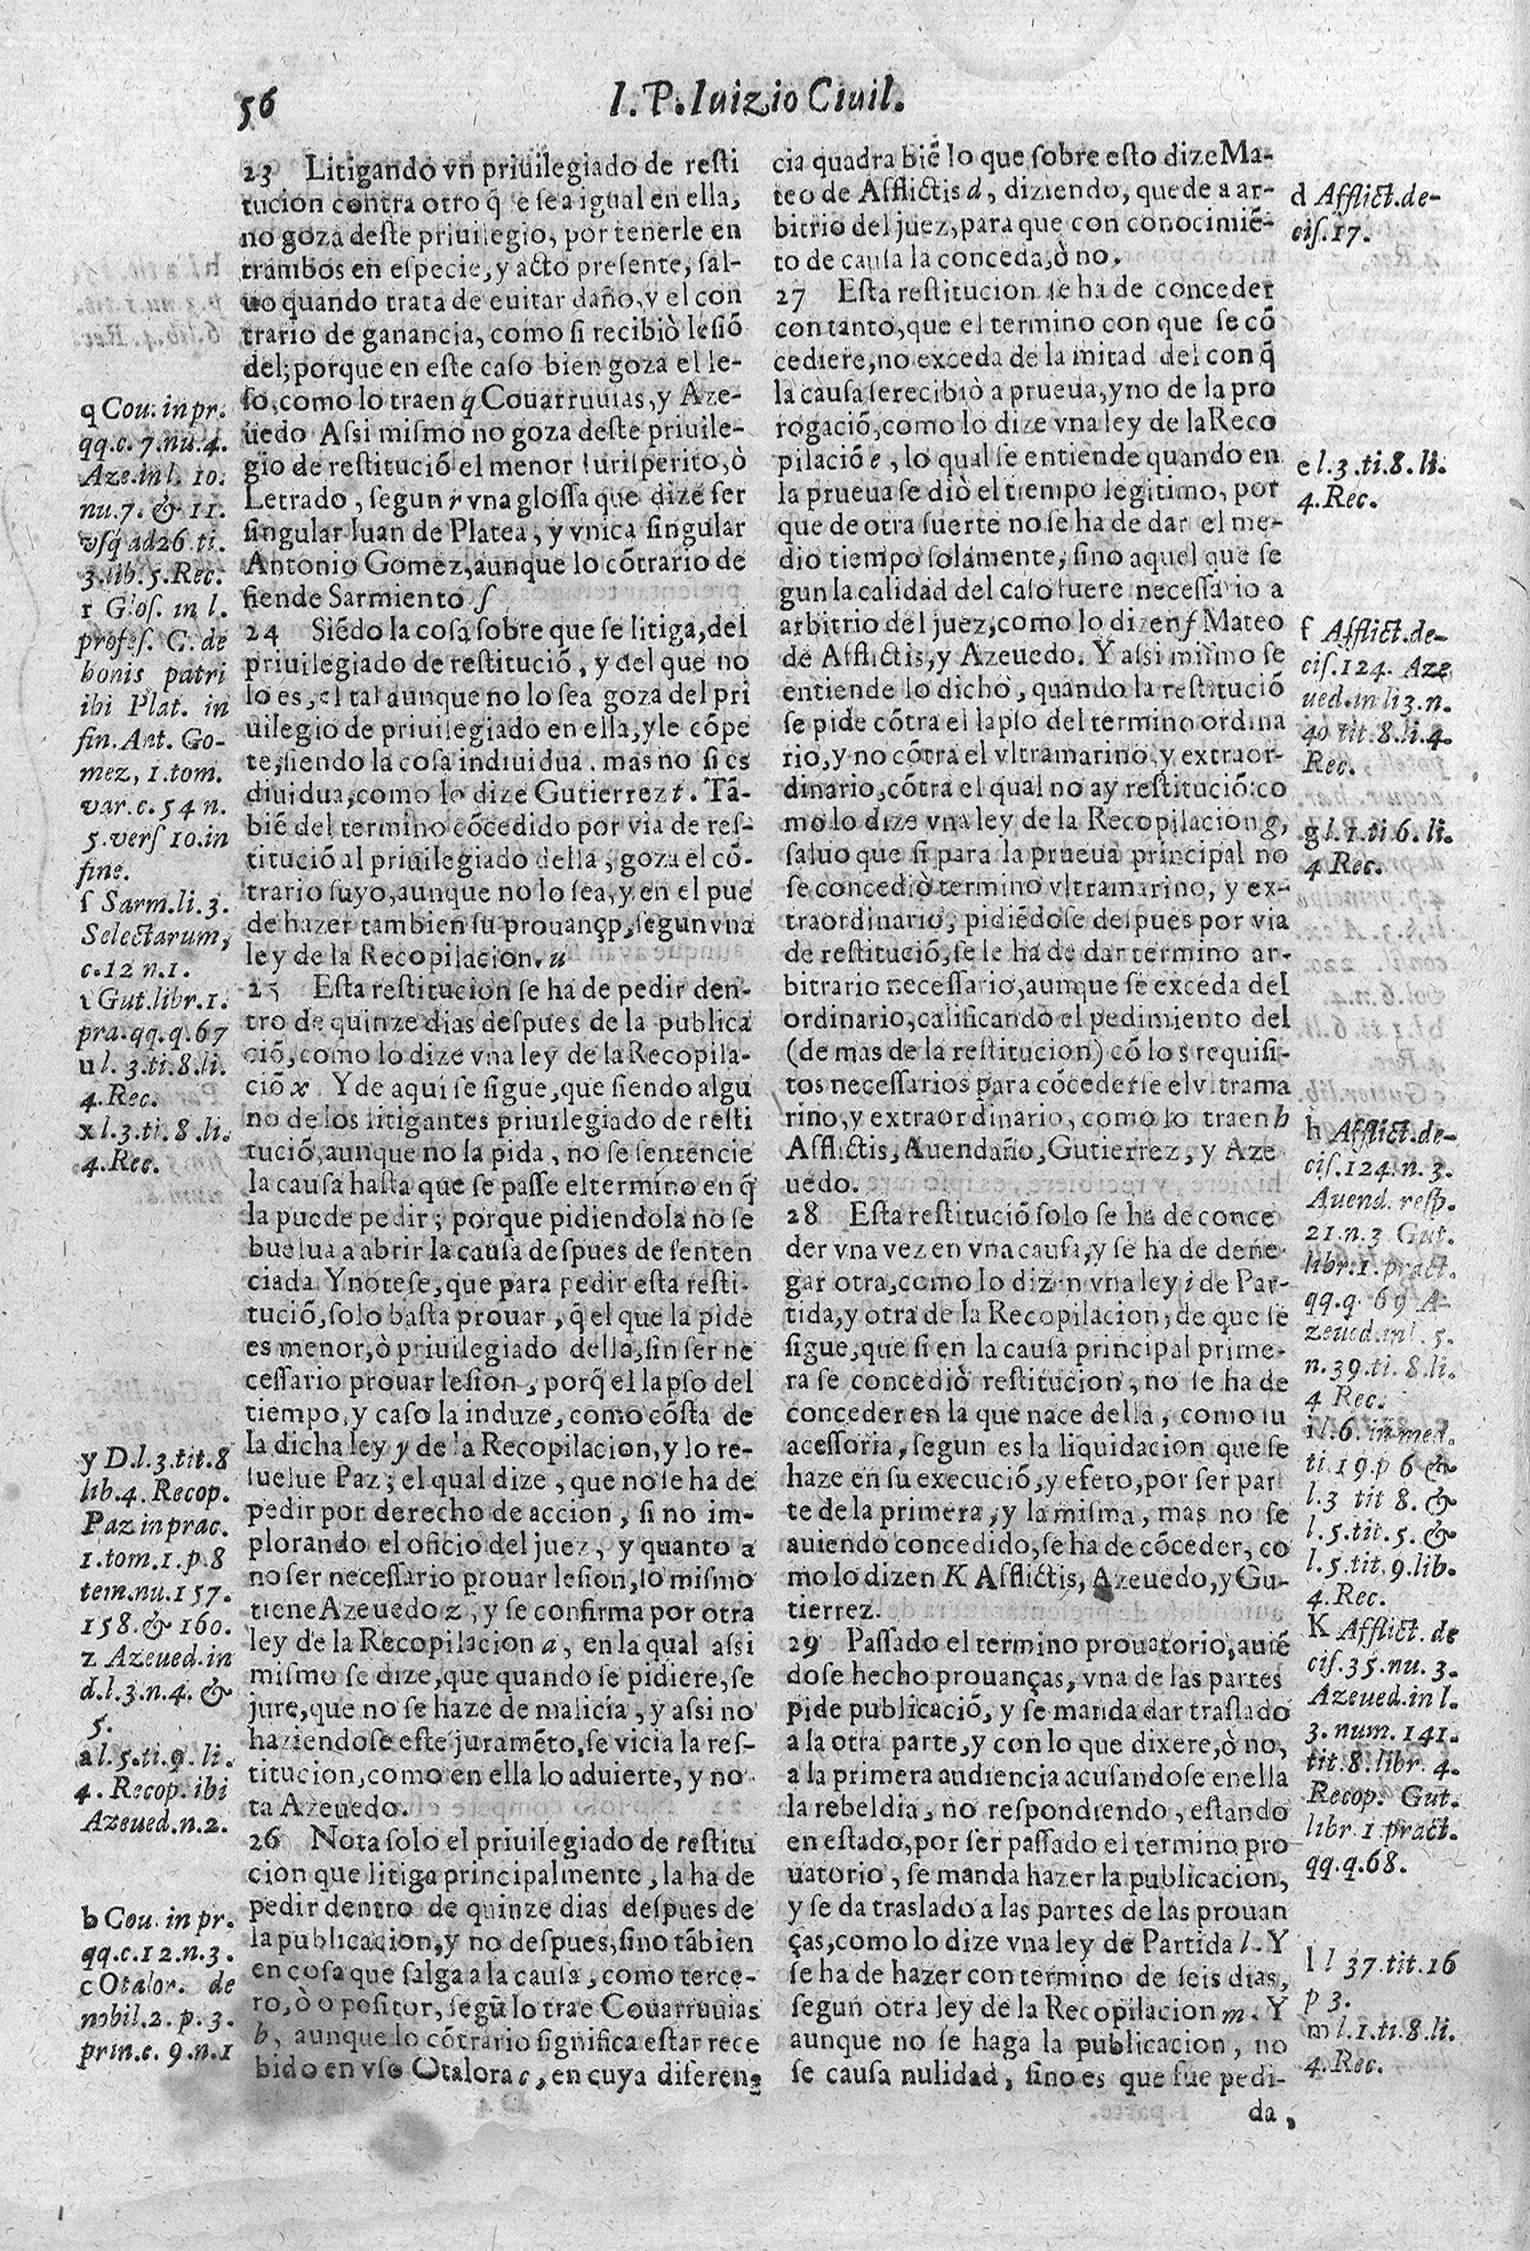 56
I. P. Iuizio Ciuil.
23 Litigando vn priuilegiado de resti
tucion contra otro q̃ le sea igual en ella,
no goza deste priuilegio, por tenerle en
trambos en especie, y acto presente, sal-
uo quando trata de euitar daño, y el con
trario de ganancia, como si recibiò lesiõ
del; porque en este caso bien goza el le-
so, como lo traen q Couarruuias, y Aze-
uedo Assi mismo no goza deste priuile-
gio de restituciõ el menor Iurisperito, ò
Letrado, segun r vna glossa que dize ser
singular Iuan de Platea, y vnica singular
Antonio Gomez, aunque lo cõtrario de
fiende Sarmiento ſ
24 Siẽdo la cosa sobre que se litiga, del
priuilegiado de restituciõ, y del que no
lo es, el tal aunque no lo sea goza del pri
uilegio de priuilegiado en ella, y le cõpe
te, siendo la cosa indiuidua. mas no si es
diuidua, como lo dize Gutierrez t. Tã-
biẽ del termino cõcedido por via de res-
tituciõ al priuilegiado della, goza el cõ-
trario suyo, aunque no lo sea, y en el pue
de hazer tambien su prouançp, segun vna
ley de la Recopilacion. u
25 Esta restitucion se ha de pedir den-
tro de quinze dias despues de la publica
ciõ, como lo dize vna ley de la Recopila-
ciõ x Y de aqui se sigue, que siendo algu
no de los litigantes priuilegiado de resti
tuciõ, aunque no la pida, no se sentencie
la causa hasta que se passe el termino en q̃
la puede pedir; porque pidiendola no se
buelua a abrir la causa despues de senten
ciada Y notese, que para pedir esta resti-
tuciõ, solo basta prouar, q̃ el que la pide
es menor, ò priuilegiado della, sin ser ne
cessario prouar lesion, porq̃ el lapso del
tiempo, y caso la induze, como cõsta de
la dicha ley y de la Recopilacion, y lo re-
suelue Paz; el qual dize, que no se ha de
pedir por derecho de accion, si no im-
plorando el oficio del juez, y quanto a
no ser necessario prouar lesion, lo mismo
tiene Azeuedo z, y se confirma por otra
ley de la Recopilacion a, en la qual assi
mismo se dize, que quando se pidiere, se
jure, que no se haze de malicia, y assi no
haziendose este juramẽto, se vicia la res-
titucion, como en ella lo aduierte, y no
ta Azeuedo.
26 Nota solo el priuilegiado de restitu
cion que litiga principalmente, la ha de
pedir dentro de quinze dias despues de
la publicacion, y no despues, sino tãbien
en cosa que salga a la causa, como terce-
ro, ò opositor, segũ lo trae Couarruuias
b, aunque lo cõtrario significa estar rece
bido en vso Otalora c, en cuya diferen-
cia quadra biẽ lo que sobre esto dize Ma-
teo de Afflictis d, diziendo, quede a ar-
bitrio del juez, para que con conocimiẽ-
to de causa la conceda, ò no.
27 Esta restitucion se ha de conceder
con tanto, que el termino con que se cõ
cediere, no exceda de la mitad del con q̃
la causa se recibiò a prueua, y no de la pro
rogaciõ, como lo dize vna ley de la Reco
pilaciõ e, lo qual se entiende quando en
la prueua se diò el tiempo legitimo, por
que de otra suerte no se ha de dar el me-
dio tiempo solamente, sino aquel que se
gun la calidad del caso fuere necessario a
arbitrio del juez, como lo dizen f Mateo
de Afflictis, y Azeuedo. Y assi mismo se
entiende lo dicho, quando la restituciõ
se pide cõtra el lapso del termino ordina
rio, y no cõtra el vltramarino, y extraor-
dinario, cõtra el qual no ay restituciõ: co
mo lo dize vna ley de la Recopilacion g,
saluo que si para la prueua principal no
se concediò termino vltramarino, y ex-
traordinario, pidiẽdose despues por via
de restituciõ, se le ha de dar termino ar-
bitrario necessario, aunque se exceda del
ordinario, calificando el pedimiento del
(de mas de la restitucion) cõ los requisi-
tos necessarios para cõcederse el vltrama
rino, y extraordinario, como lo traen h
Afflictis, Auendaño, Gutierrez, y Aze
uedo.
28 Esta restituciõ solo se ha de conce
der vna vez en vna causa, y se ha de dene-
gar otra, como lo dizen vna ley i de Par-
tida, y otra de la Recopilacion, de que se
sigue, que si en la causa principal prime-
ra se concediò restitucion, no se ha de
conceder en la que nace della, como su
acessoria, segun es la liquidacion que se
haze en su execuciõ, y efeto, por ser par
te de la primera, y la misma, mas no se
auiendo concedido, se ha de cõceder, co
mo lo dizen K Afflictis, Azeuedo, y Gu-
tierrez.
29 Passado el termino prouatorio, auiẽ
dose hecho prouanças, vna de las partes
pide publicaciõ, y se manda dar traslado
a la otra parte, y con lo que dixere, ò no,
a la primera audiencia acusandose en ella
la rebeldia, no respondiendo, estando
en estado, por ser passado el termino pro
uatorio, se manda hazer la publicacion,
y se da traslado a las partes de las prouan
ças, como lo dize vna ley de Partida l. Y
se ha de hazer con termino de seis dias,
segun otra ley de la Recopilacion m. Y
aunque no se haga la publicacion, no
se causa nulidad, sino es que fue pedi-
da,
q Cou. in pr.
qq. c. 7. nu. 4.
Aze. in l. 10.
nu. 7. & 11.
vsq̃ ad 26 ti.
3. lib. 5. Rec.
r Glos. in l.
profes. C. de
bonis patri
ibi Plat. in
fin. Ant. Go-
mez, 1. tom.
var. c. 54 n.
5. vers 10. in
fine.
ſ Sarm. li. 3.
Selectarum,
c. 12 n. 1.
t Gut. libr. 1.
pra. qq. q. 67
u l. 3. ti. 8. li.
4. Rec.
x l. 3. ti. 8. li.
4. Rec.
y D. l. 3. tit. 8
lib. 4. Recop.
Paz in prac.
1. tom. 1. p. 8
tem. nu. 157.
158. & 160.
z Azeued. in
d. l. 3. n. 4. &
5.
a l. 5. ti. 9. li.
4. Recop. ibi
Azeued. n. 2.
b Cou. in pr.
qq. c. 12. n. 3.
c Otalor. de
nobil. 2. p. 3.
prin. c. 9. n. 1
d Afflict. de-
cis. 17.
e l. 3. ti. 8. li.
4. Rec.
f Afflict. de-
cis. 124. Aze
ued. in li 3. n.
40 tit. 8. li. 4.
Rec.
g l. 1. ti 6. li.
4 Rec.
h Afflict. de-
cis. 124. n. 3.
Auend. resp.
21. n. 3 Gut.
libr. 1. pract.
qq. q. 69 A-
zeued. in l. 5.
n. 39. ti. 8. li.
4 Rec.
i l. 6. in med.
ti. 19. p 6 &
l. 3 tit 8. &
l. 5. tit. 5. &
l. 5. tit. 9. lib.
4. Rec.
K Afflict. de
cis. 35. nu. 3.
Azeued. in l.
3. num. 141.
tit. 8. libr. 4.
Recop. Gut.
libr. 1 pract.
qq. q. 68.
l l 37. tit. 16
p 3.
m l. 1. ti. 8. li.
4. Rec.